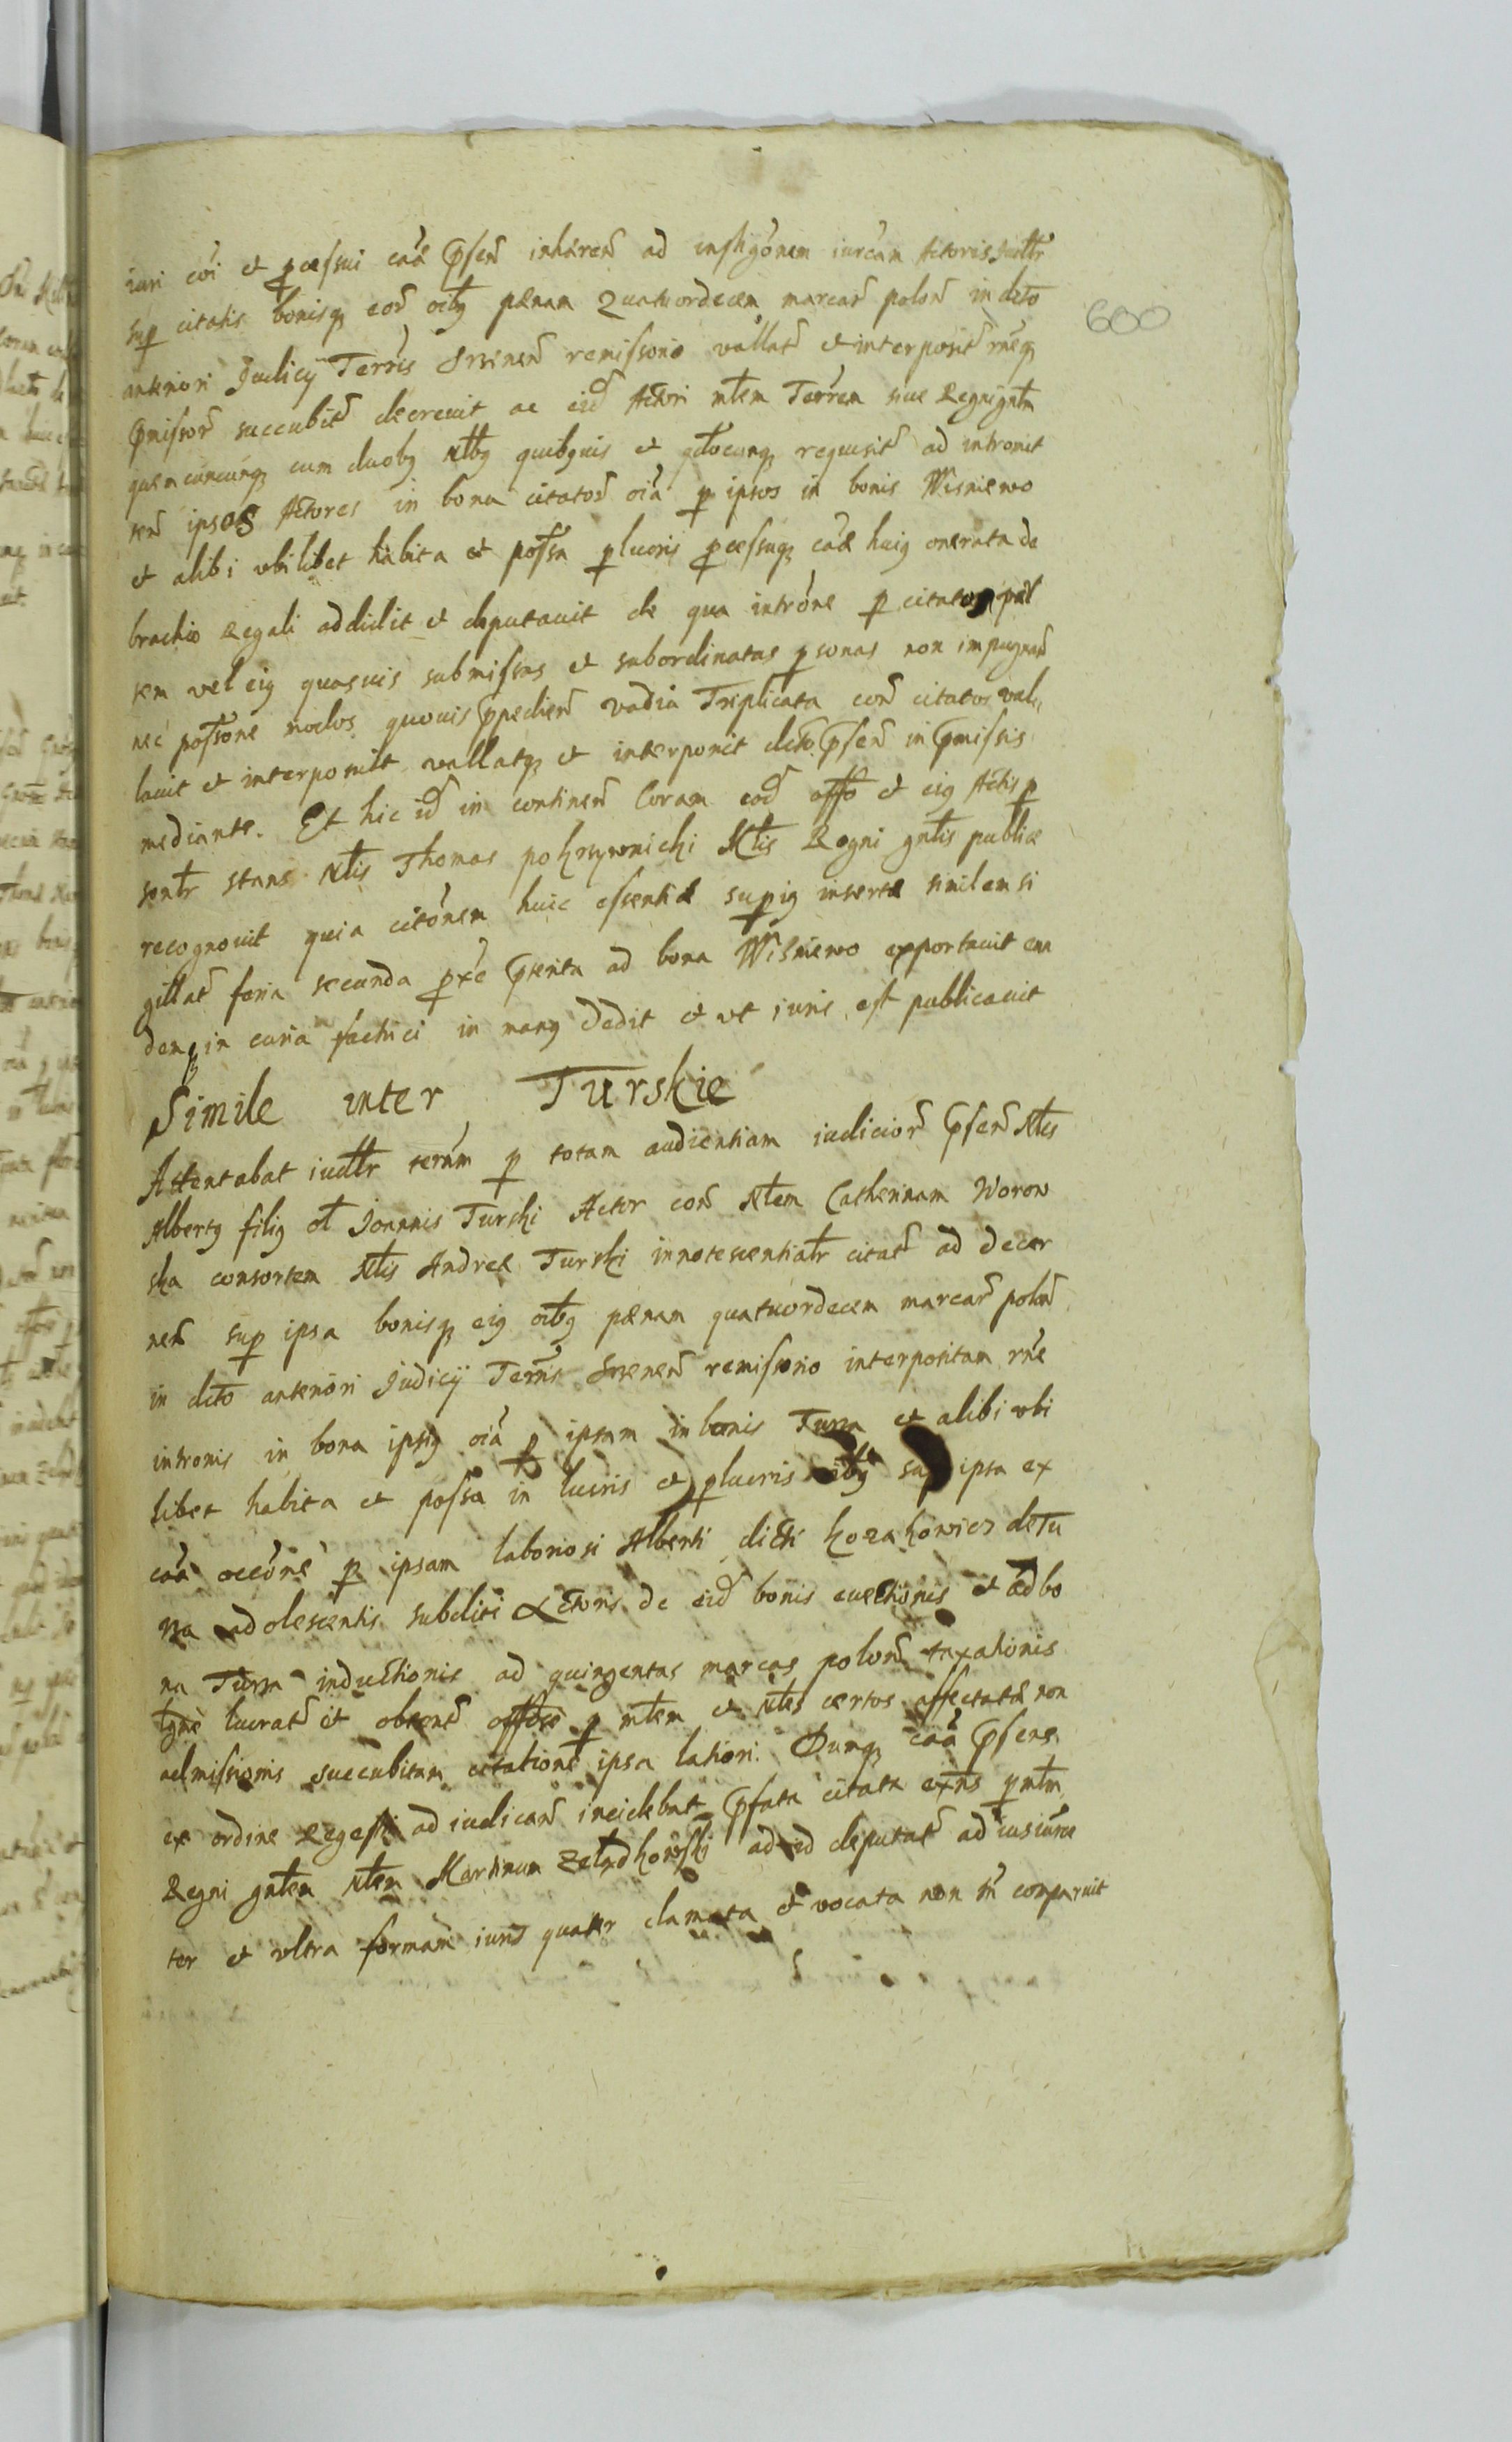 iuri coi et pcessui caa psen inhæren ad instigonem iurcam Actoris iudltr
600
sup citatis bonisq eor oibg pænam Quatuordecem marcar polon in dcto
anteriori Judicy Terris Srzenen remissorio vallat et interposit rneq
pmissor succubit decreuit ac eid Actori mtem Terrem siue Regni gntm
quemcuncunq cum duobg Ntbg quibguis et qdocunq requisit ad intromit
ten ipsos Actores in bona citator oia p ipsos in bonis Wisniewo
et alibi vbilibet habita et possa plucris pcessuq caæ huig onerata de
brachio Regali addidit et deputauit de qua introne p citatos
sem vel eig quasuis submissas et subordinatas psonas non impugnan
nec possone modos quouis ppedien vadia Triplicata con citatos val
lauit et interposuit vallatq et interponit dcto psen in pmissis
mediante. Et hic id in continen Coram eod offo et eig Actis p
sentr stans Ntis Thomas pokrzywnicki Mtis Regni gntis publice
recognouit quia citonem huic essentiæ superig insertæ similem si
gillat feria secunda pxe pterita ad bona Wisniewo exportauit ean
demq in curia factiuei in mang dedit et vt iuris est publicauit
Simile inter Turskie
Attentabat iudltr termm p totam audientiam iudicior psen Ntis
Albertg filig ol Joannis Turski Actor con Ntem Catherinam Worow
ska consortem Ntis Andreæ Turski innotescentialr citat ad decer
nen sup ipsa bonisq eig oibg pænam quatuordecem marcar polon
in dcto anteriori Judicij Terris Srzenen remissorio interpositam rne
intromis in bona ipsig oia p ipsam in bonis Turza et alibi vbi
libet habita et possa in lucris et plucris oibg sup ipsa ex
caa occone p ipsam laboriosi Alberti dicti kozakowicz de Tu
rza adolescentis subditi Actoris de eisd bonis euectionis et ad bo
na Turza inductionis ad quingentas marcas polon taxationis
tgne lucrat et obtent offose p mtem et Ntes certos affectatæ non
admissionis succubitam citatione ipsa latiori. Dumq caa psens
ex ordine Regestri ad iudican incidebat pfata citata extis p mtm
Regni gntem Ntem Martinum ad id deputat ad iusiuræ
ter et vltra formam iuris quater clamata et vocata non e comparuit